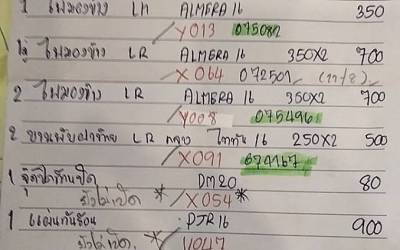 1 ไฟมองข้าง LH ALMERA 16 350
/Y013 075082
ไฟมองข้าง LR ALMERA 16 350X2 700
/X064 072501 (27/8)
2 ไฟมองข้าง LR ALMERA 16 350X2 700
/Y008 075496
2 LR กลาง ไททัน 16 250X2 500
/X091 074167
1 DM20 80
ยังไม่เปิด * /X054 *
1 แผ่นกันร้อน PJR16 900
ยังไม่เปิด. *